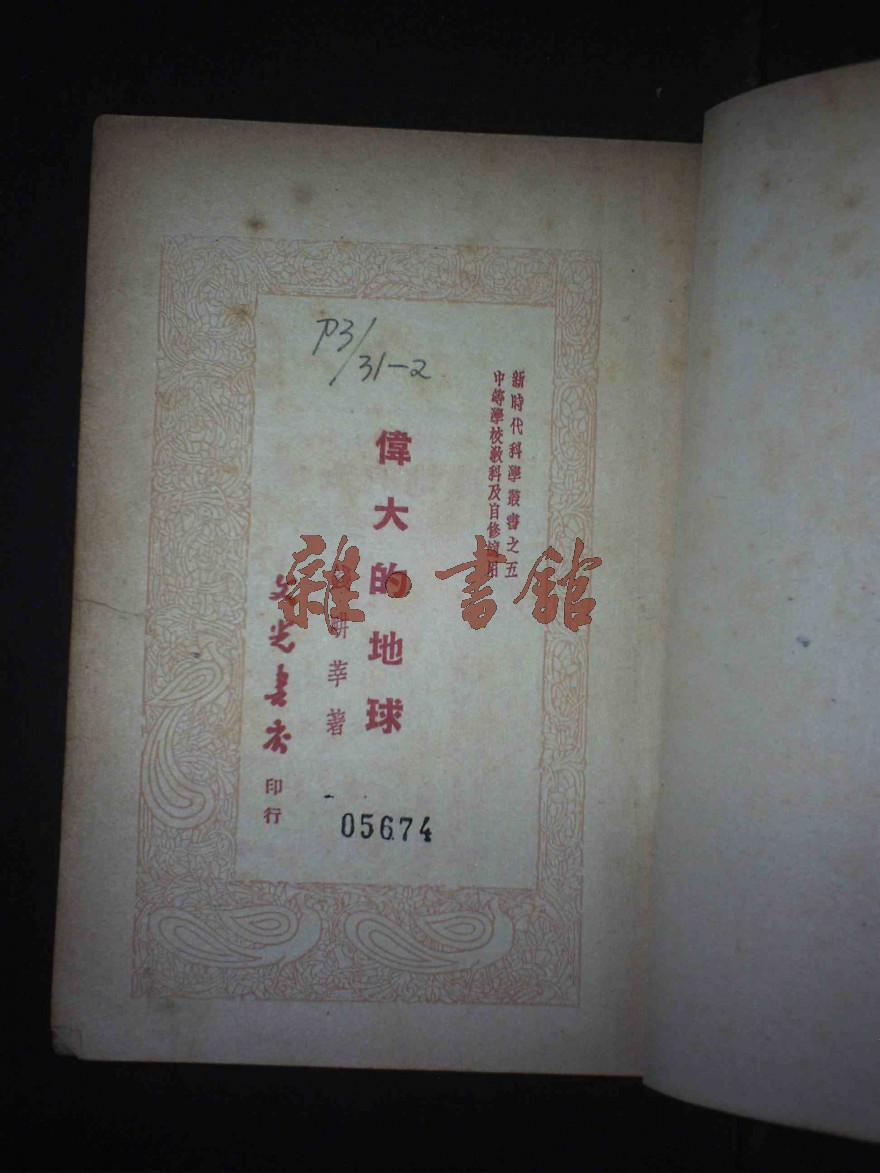 P3/
31-2
新時代科學叢書之五
中等學校教科及自修適用
偉大的地球
耕莘著
文光書店
印行
05674
雜·書館